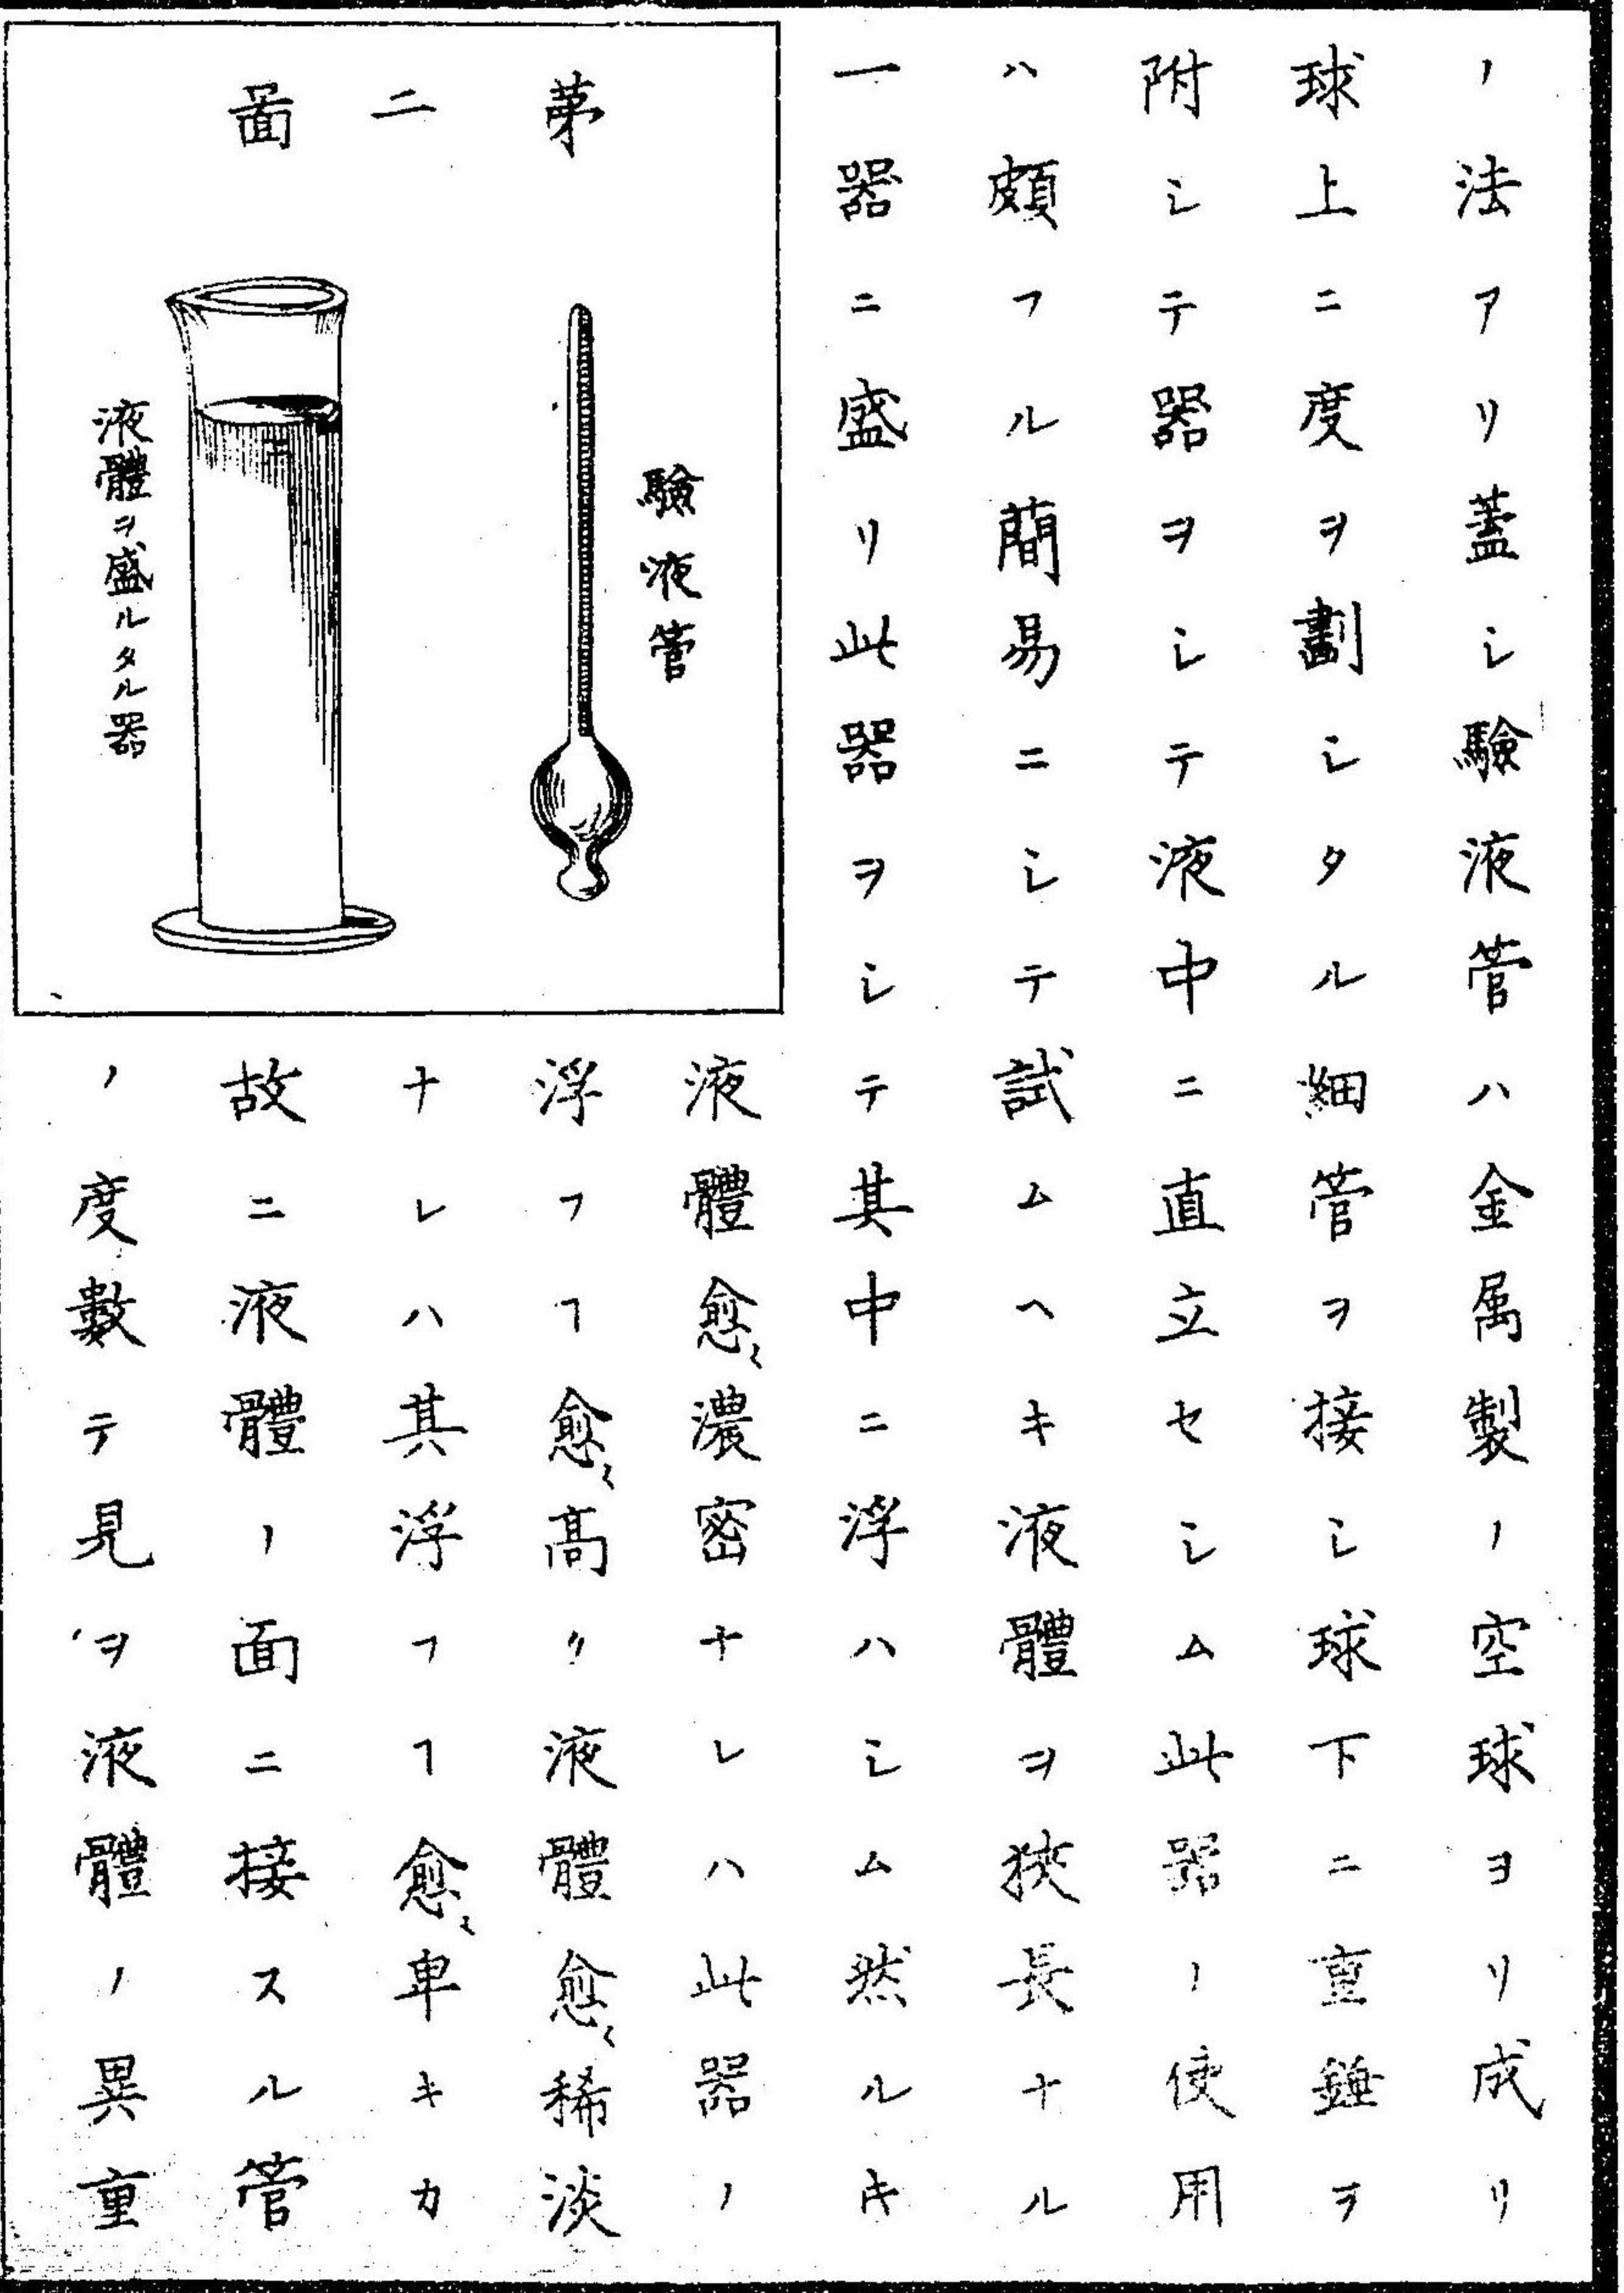 ノ法アリ蓋シ驗液管ハ金属製ノ空球ヨリ成リ
球上ニ度ヲ劃シタル細管ヲ接シ球下ニ重錘ヲ
附シテ器ヲシテ液中ニ直立セシム此器ノ使用
ハ頗フル簡易ニシテ試ムヘキ液體ヲ狹長ナル
一器ニ盛リ此器ヲシテ其中ニ浮ハシム然ルキ
液體愈〻濃密ナレハ此器ノ
浮フヿ愈〻高ク液體愈〻稀淡
ナレハ其浮フヿ愈〻卑キカ
故ニ液體ノ面ニ接スル管
ノ度數テ見ヲ液體ノ異重
第二啚
驗液管
液體ヲ盛ルタル器